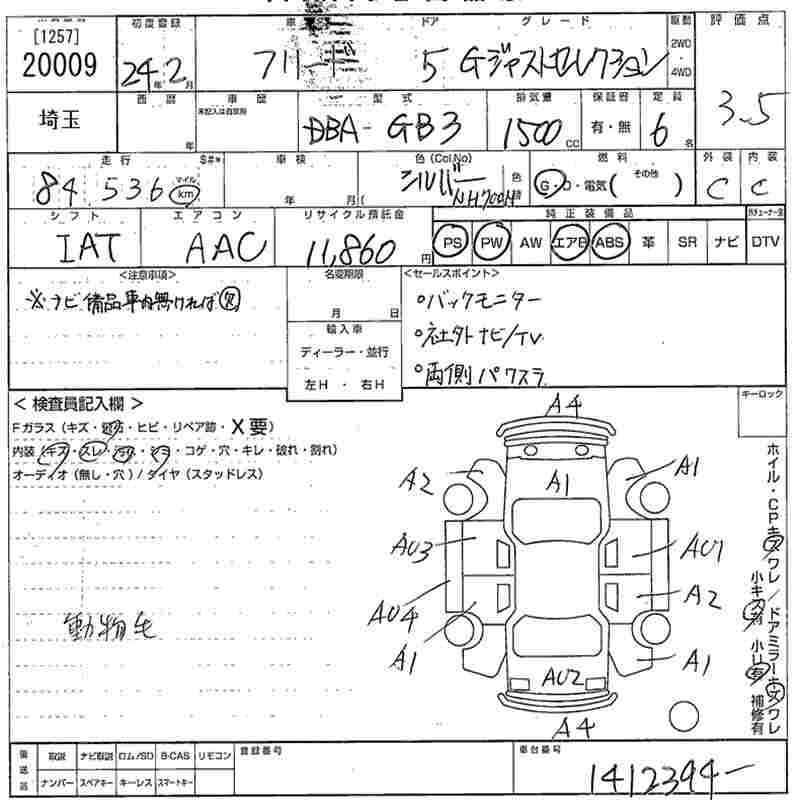 [1257]
20009
初度登録
24年2月
車
フリード
ドア
5
グレード
Gジャストセレクション
駆動
2WD
・
4WD
評価点
3.5
埼玉
西暦
年
車歴
未記入は自家用
型式
DBA-GB3
排気量
1500CC
保証書
有・無
定員
6名
走行
84536
マイル
km
$#*
車検
年 月(
色(Col.No)
シルバー
NH700M
色替
燃料
G・D・電気(その他 )
外装
C
内装
C
シフト
IAT
エアコン
AAC
リサイクル預託金
11,860円
純正装備品
PS PW AW エアB ABS 革 SR ナビ
DTV
<注意事項>
※ナビ備品車内無ければ欠
名変期限
月 日
輸入車
ディーラー・並行
左H・右H
<セールスポイント>
○バックモニター
○社外ナビ/TV
○両側パワスラ
<検査員記入欄>
Fガラス(キズ・飛石・ヒビ・リペア跡・X要)
内装(キズ・スレ・汚れ・シミ・コゲ・穴・キレ・破れ・割れ)
オーディオ(無し・穴)/タイヤ(スタッドレス)
動物毛
キーロック
A4
A2
A1
A1
AU3
AU1
AU4
A2
A1
A1
AU2
A4
ホイル・CPキズワレ/ドアミラーキズワレ
小キズ有 小U有 補修有
後送品
取説 ナビ取説 ロム/SD B-CAS リモコン
ナンバー スペアキー キーレス スマートキー
登録番号
車台番号
1412394-